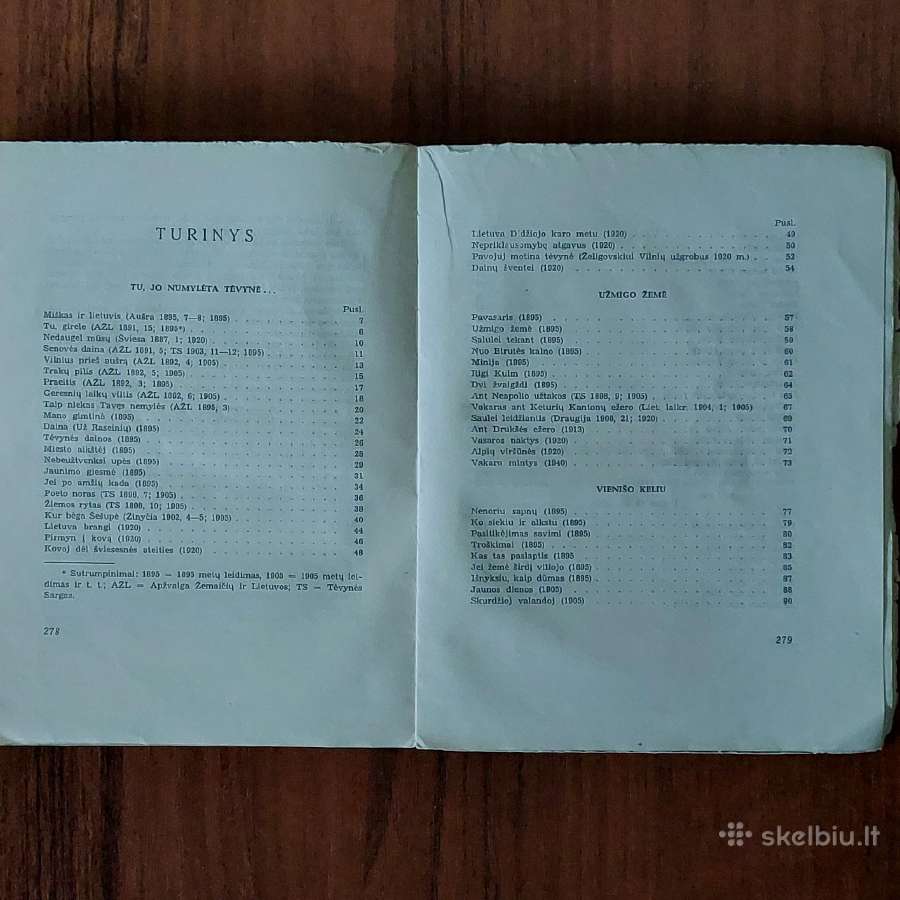 TURINYS
TU, JO NUMYLĖTA TĖVYNĖ...
Pusl.
Miškas ir lietuvis (Aušra 1885, 7—8; 1895) 7
Tu, girele (AŽL 1891, 15; 1895*)
Nedaugel mūsų (Šviesa 1887, 1; 1920) 10
Senovės daina (AŽL 1891, 5; TS 1903, 11—12; 1895) 11
Vilnius prieš aušrą (AŽL 1892, 4; 1905) 13
Trakų pilis (AŽL 1892, 5; 1905) 15
Praeitis (AŽL 1892, 3; 1895) 17
Geresnių laikų viltis (AŽL 1892, 6; 1905) 18
Taip niekas Tavęs nemylės (AŽL 1895, 3) 20
Mano gimtinė (1895) 22
Daina (Už Raseinių) (1895) 24
Tėvynės dainos (1895) 26
Miesto aikštėj (1895) 28
Nebeužtvenksi upės (1895) 29
Jaunimo giesmė (1895) 31
Jei po amžių kada (1895) 34
Poeto noras (TS 1898, 7; 1905) 36
Žiemos rytas (TS 1898, 10; 1905) 38
Kur bėga Šešupė (Žinyčia 1902, 4—5; 1905) 40
Lietuva brangi (1920) 44
Pirmyn į kovą (1920) 46
Kovoj dėl šviesesnės ateities (1920) 48
* Sutrumpinimai: 1895 = 1895 metų leidimas, 1905 = 1905 metų lei-
dimas ir t. t.; AŽL = Apžvalga Žemaičių ir Lietuvos; TS = Tėvynės
Sargas.
278
Pusl.
Lietuva Didžiojo karo metu (1920) 49
Nepriklausomybę atgavus (1920) 50
Pavojuj motina tėvynė (Želigovskiui Vilnių užgrobus 1920 m.) 52
Dainų šventei (1920) 54
UŽMIGO ŽEMĖ
Pavasaris (1895) 57
Užmigo žemė (1895) 58
Saulei tekant (1895) 59
Nuo Birutės kalno (1895) 60
Minija (1895) 61
Rigi Kulm (1895) 62
Dvi žvaigždi (1895) 64
Ant Neapolio užtakos (TS 1898, 9; 1905) 65
Vakaras ant Keturių Kantonų ežero (Liet. laikr. 1904, 1; 1905) 67
Saulei leidžiantis (Draugija 1908, 21; 1920) 69
Ant Drukšės ežero (1913) 70
Vasaros naktys (1920) 71
Alpių viršūnės (1920) 72
Vakaro mintys (1940) 73
VIENIŠO KELIU
Nenoriu sapnų (1895) 77
Ko siekiu ir alkstu (1895) 79
Pasitikėjimas savimi (1895) 80
Troškimai (1895) 82
Kas tas paslaptis (1895 83
Jei žemė širdį viliojo (1895) 85
Išnyksiu, kaip dūmas (1895) 87
Jaunos dienos (1905) 88
Skurdžioj valandoj (1905) 90
279
skelbiu.lt